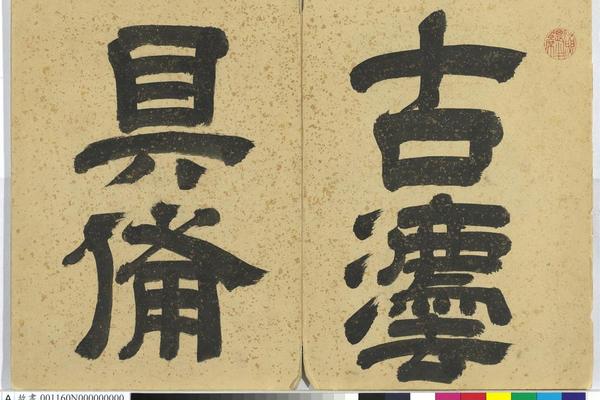 古灋
具備
001160N000000000